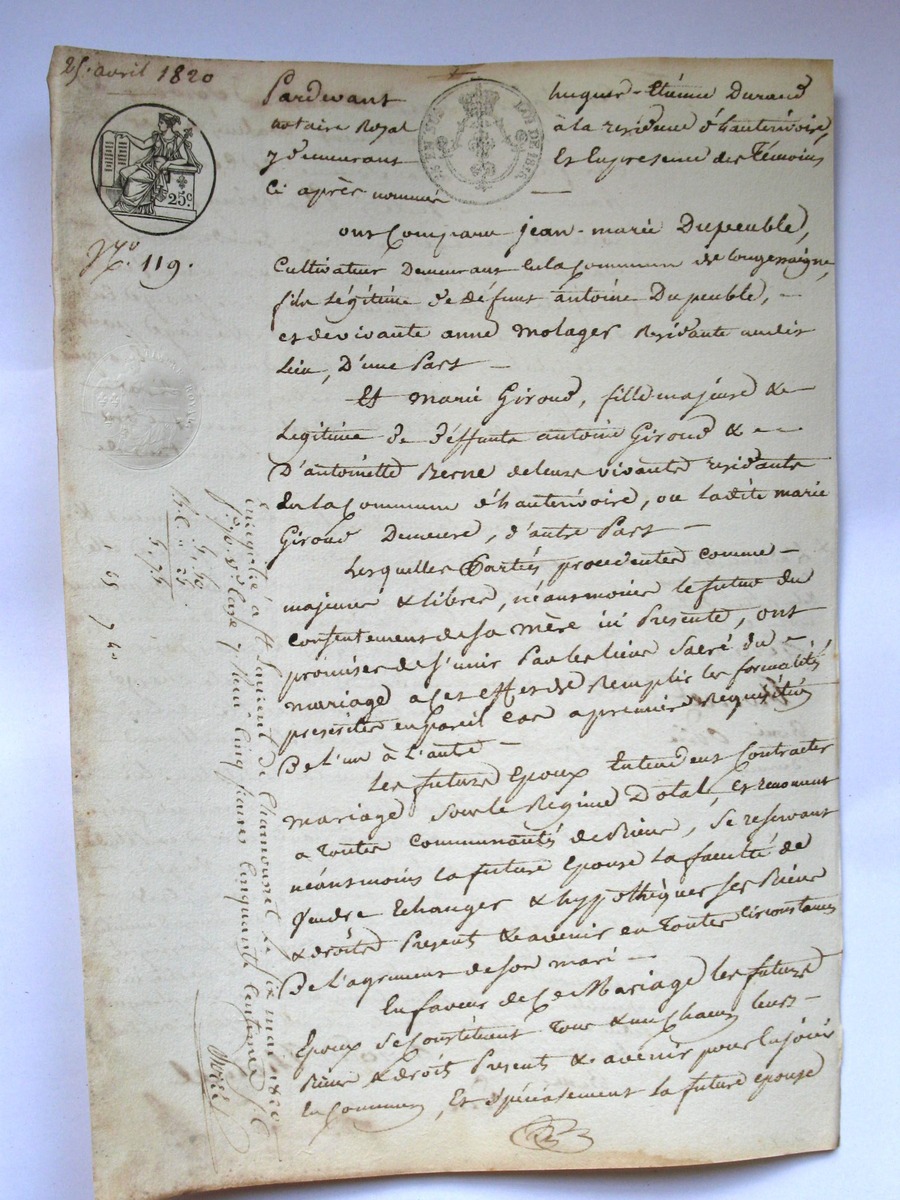 25. avril 1820
25c.
No. 119.
Pardevant hugues-Etienne Durand
notaire Royal à la residence d'hauterivoire,
y demeurant Et en presence des Témoins
Ci après nommés
LOI DE
ont Comparu jean-marie Dupeuble,
Cultivateur Demeurant en la Commune de Longessaigne,
fils Légitime de défunt antoine Dupeuble, -
et de vivante anne molager Residante audit
Lieu, D'une Part -
Et marie Giroud, fille majeure &
Légitime de deffunts antoine Giroud & -
D'antoinette Berne de leurs vivants residants
En la Commune d'hauterivoire, ou ladite marie
Giroud Demeure, d'autre Part -
Lesquelles Parties procedantes comme -
majeures & libres, néansmoins le futur du
consentement de sa mère ici Presente, ont
promises de s'unir Par les liens Sacré du -
mariage a cet effet de Remplir les formalités
prescrites en Pareil cas a premiere Requisition
De l'un à L'autre -
Les futurs Epoux Entendent Contracter
mariage sous le Régime Dotal, et renoncent
a Toutes Communautés de Biens, se reservant
néansmoins la future Epouse la faculté de
Vendre Echanger & hypothèquer ses Biens
& droits Present & avenir en Toutes Circonstances
De l'agrement de son mari -
En faveur de Ce Mariage les futurs
Epoux se Constituent Tous & un Chacun leurs -
Biens & droits Present & avenir pour en joüir
En Commun, Et spécialement la future epouse
Enregistré à St Laurent de Chamousset le six mai 1820
fo 70. Vo Case 7 Reçu Cinq francs Cinquante Centimes
5. 50.
5. 75